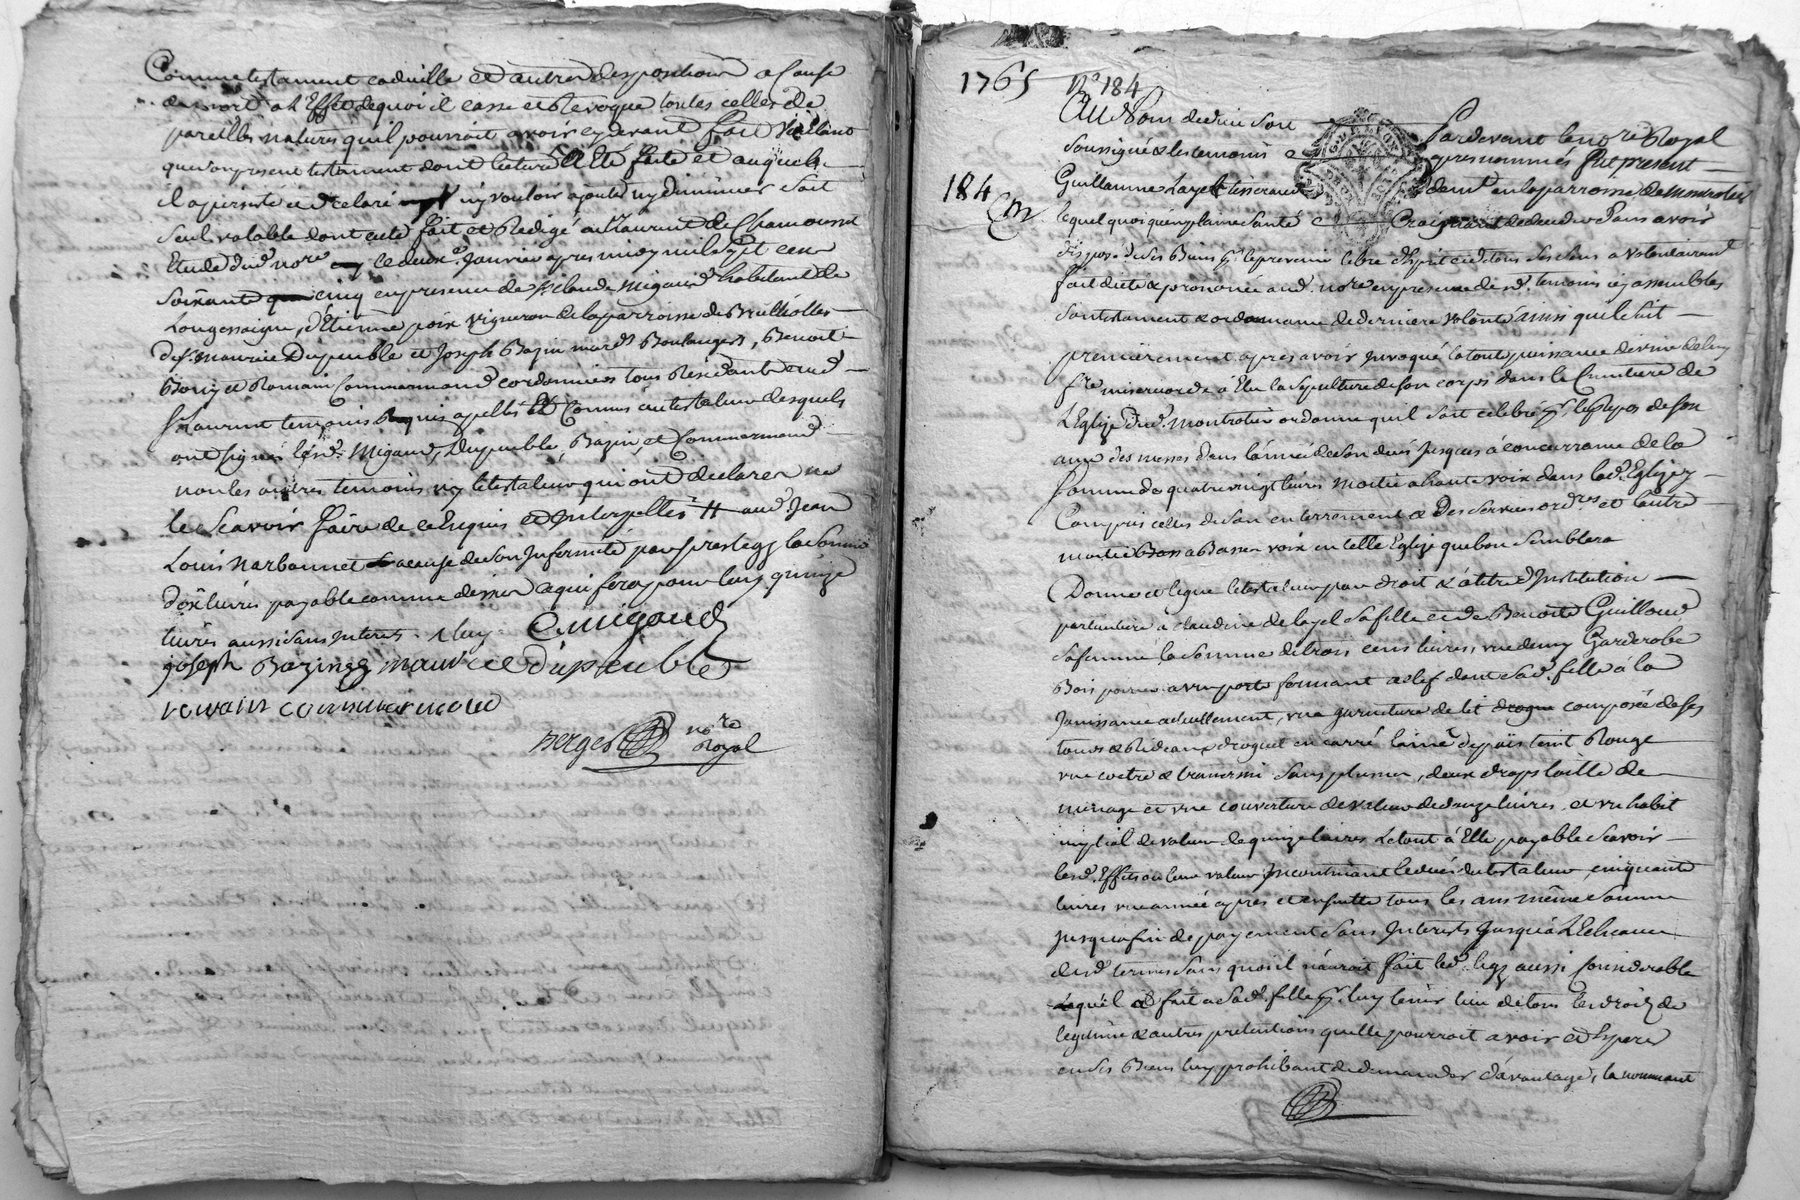 Comme testament codicille et autres disposition a Cause
de mort a l'Effet dequoi il casse et Revoque toutes celles de
pareilles natures quil pourroit avoir cy devant fait Voullant
que son present testament dont lecture a Eté faite et auquel
il a persisté et declaré ny vouloir ajouter ny diminuer soit
seul valable dont acte fait et Redigé au St Laurent de Chamousset
Etude dud. nore le deux e. Janvier apres midy mil sept cent
soixante cinq en presence de Sr. claude Migaud habitant de
Longessaigne, d'Etienne poix vigneron de la parroisse de Brullioles
de Sr. maurice Dupeuble et Joseph Bazin mards. Boulangers, Benoit
Bony et Romain Commarmond cordonniers tous Residants aud.
St Laurent temoins Requis appellés et Connus au testateur desquels
ont signés led. sr. Migaud, Dupeuble, Bazin, et Commarmond
non les autres temoins ny le testateur qui ont declarer ne
le scavoir faire de ce Enquis et Interpellés # aud. Jean
Louis Narbonnet a cause de son Infirmité par prelegz la somme
dix livres payable comme dessus ce qui fera pour luy quinze
livres aussi sans Interets.
C migaud
joseph Bazin maurice Dupeuble
romain commarmond
Berger nore
Royal
1765 No 184
Au Nom de dieu soit
Pardevant le nore Royal
soussigné & les temoins
apres nommés fut present
184
Guillaume Layet tisserand
demt. en la parroisse de montrotier
lequel quoi qu'en plaine santé
Craignant de deceder Sans avoir
disposé de ses Biens pr. le prevenir libre d'Esprit et de tous ses sens a Volontairemt
fait dicté & prononcé aud. nore en presence desd. temoins icy assemblés
son testament & ordonnance de derniere volonté ainsi quil suit
premierement apres avoir Invoqué la toute puissance divine de luy
fre. misericorde a Elu la sepulture de son corps dans le Cimetiere de
L'Eglize dud. Montrotier ordonne quil soit celebré pr. le Repos de son
ame des messes dans l'année de son decés Jusques á concurrance de la
somme de quatre vingt livres moitié a haute voix dans lad. Eglize y
Compris celles de son enterrement & des services ordres et l'autre
moitié a Basse voix en telle Eglize que bon semblera
Donne et legue le testateur par droit & á titre d'Institution
particuliere a claudine Layet sa fille et de Benoite Guilloud
sa femme la somme de trois cens livres, une demy Garderobe
Bois poirier a une porte fermant a clef dont sad. fille á la
Jouissance actuellement, une garniture de lit composée de ses
tours & Rideaux droguet en carré laine du païs teint Rouge
une coetre & traversin sans plumes, deux draps toille de
menage et une couverture de valeur de douze livres et un habit
nuptial de valeur de quinze livres Le tout á Elle payable scavoir
lesd. Effets ou leur valeur Incontinant le decés du testateur cinquante
livres une année apres et ensuitte tous les ans même somme
jusqua fin de payement sans Interets Jusqu'á L'Echeance
desd. termes sans quoi il n'auroit fait led. legz aussi Considerable
Lequel il fait a sad. fille pr. luy tenir lieu de tous les droits de
legitime & autres pretentions quelle pourroit avoir et Esperer
en ses Biens luy prohibant de demander d'avantage, la nommant